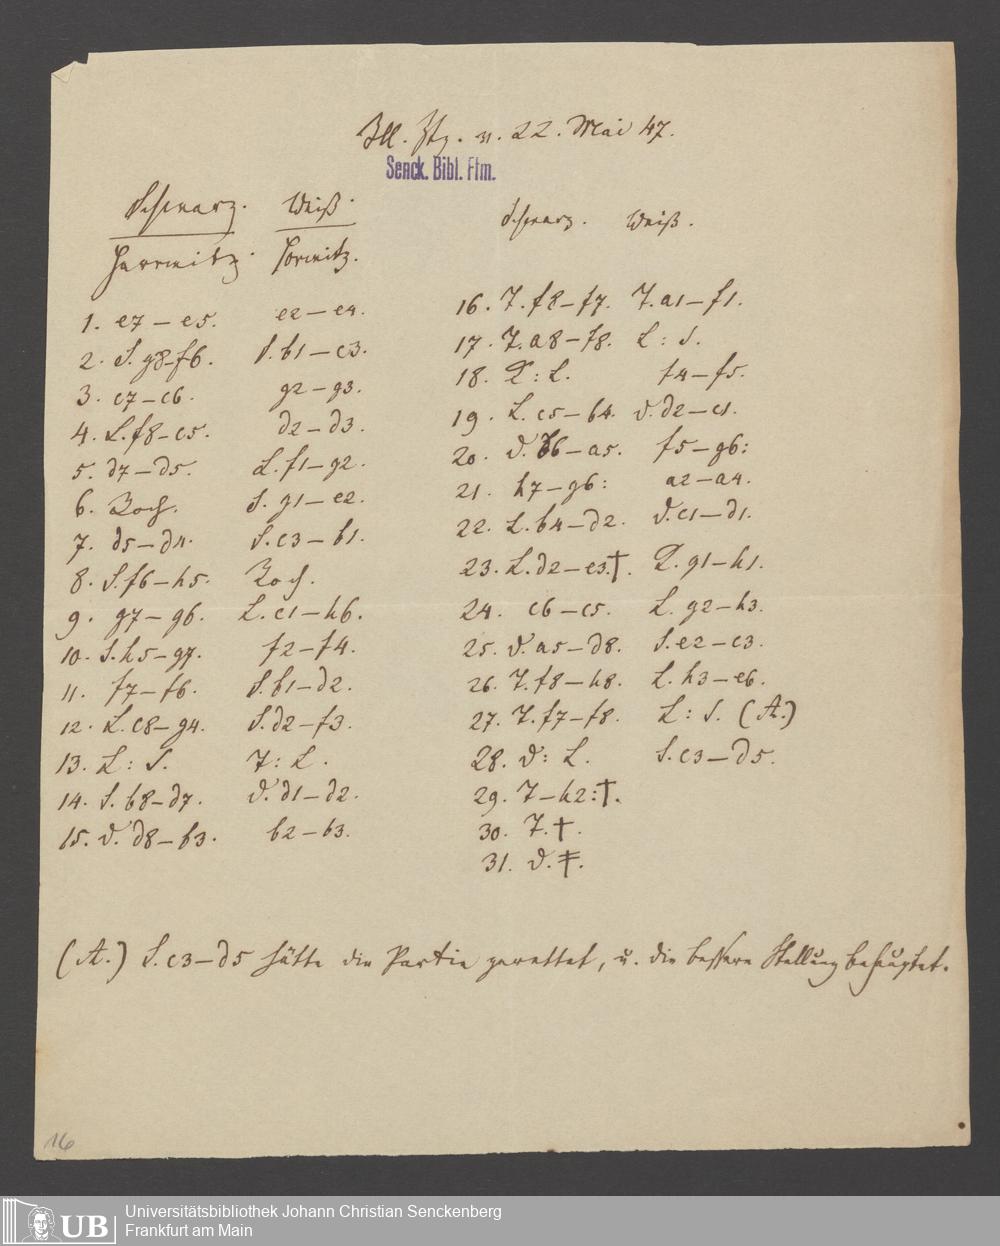 Ill. Ztg. v. 22. Mai 47.
Senck. Bibl. Ffm.
Schwarz. Weiß.
Harrwitz. Horwitz.
1. e7–e5. e2–e4.
2. S. g8–f6. S. b1–c3.
3. c7–c6. g2–g3.
4. L. f8–c5. d2–d3.
5. d7–d5. L. f1–g2.
6. Roch. S. g1–e2.
7. d5–d4. S. c3–b1.
8. S. f6–h5. Roch.
9. g7–g6. L. c1–h6.
10. S. h5–g7. f2–f4.
11. f7–f6. S. b1–d2.
12. L. c8–g4. S. d2–f3.
13. L: S. T: L.
14. S. b8–d7. D. d1–d2.
15. D. d8–b3. b2–b3.
Schwarz. Weiß.
16. T. f8–f7. T. a1–f1.
17. T. a8–f8. L: S.
18. K: L. f4–f5.
19. L. c5–b4. D. d2–c1.
20. D. b6–a5. f5–g6:
21. h7–g6: a2–a4.
22. L. b4–d2. D. c1–d1.
23. L. d2–e3.†. K. g1–h1.
24. c6–c5. L. g2–h3.
25. D. a5–d8. S. e2–c3.
26. T. f8–h8. L. h3–e6.
27. T. f7–f8. L: S. (A.)
28. D: L. S. c3–d5.
29. T–h2:†.
30. T. †.
31. D. ‡.
(A.) S. c3–d5 hätte die Partie gerettet, u. die bessere Stellung behauptet.
16
UB
Universitätsbibliothek Johann Christian Senckenberg
Frankfurt am Main